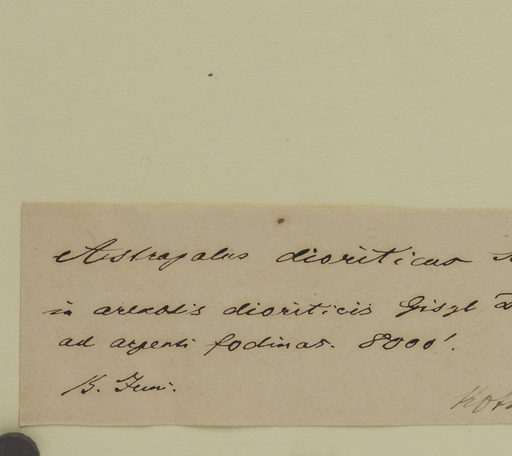 Astragalus dioriticus
in arenosis dioriticis Gisyl
ad argenti fodinas. 8000'.
Juni.